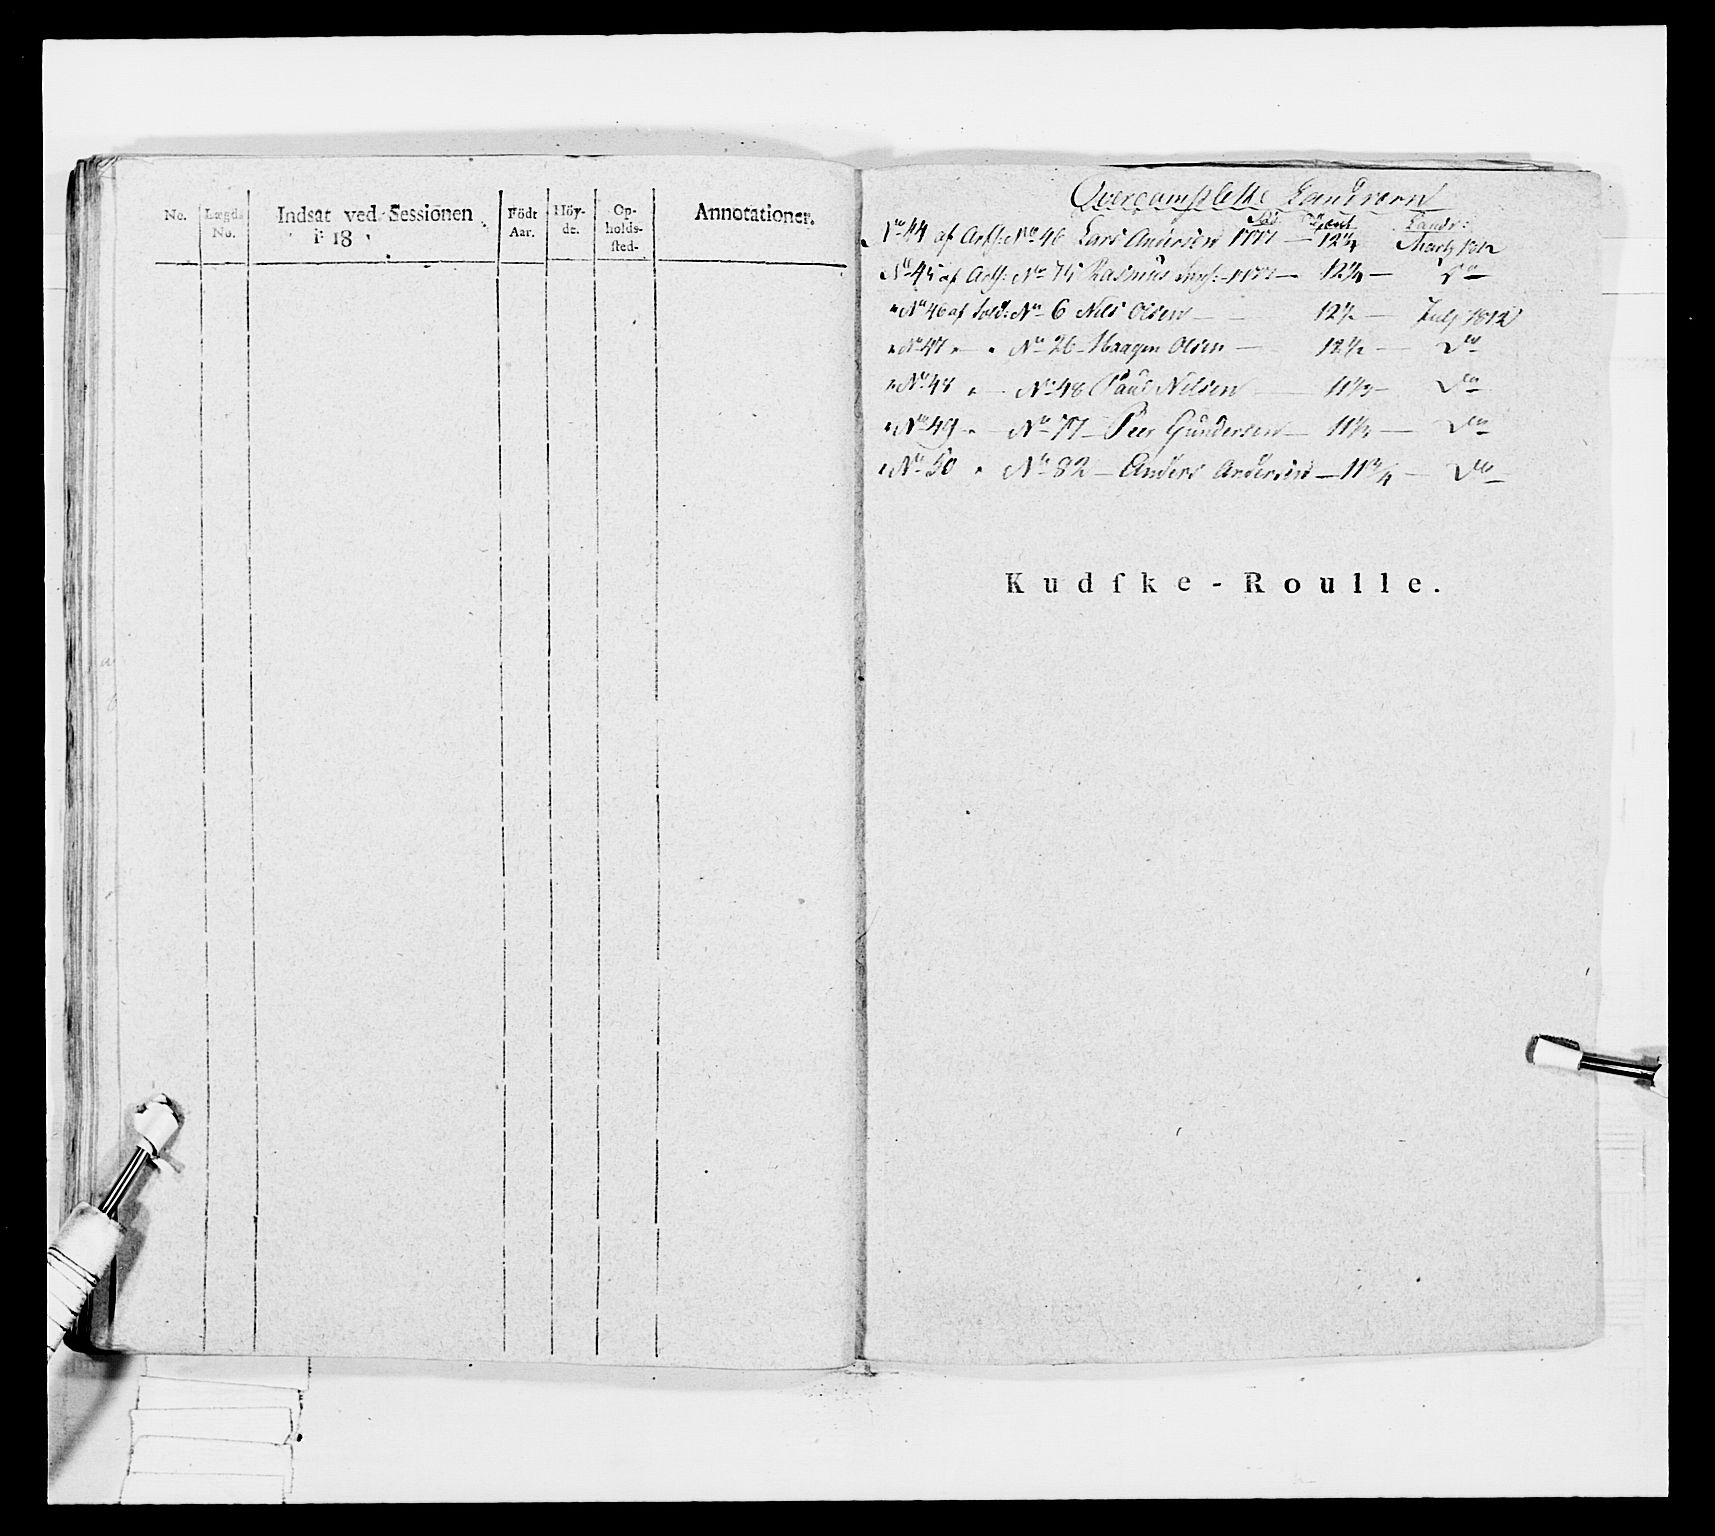 No. Lægds No. Indsat ved Sessionen i 18 Födt Aar. Höy-de. Op-holds-sted. Annotationer.
Overcomplette Landværn
No 44 af No 46 Lars Andersen 1777 — 12¼ Marty 1812
No 45 af No 75 Rasmus 1777 — 12¼ — Do
" No 46 af Sold: No 6 Nils Olsen — 12½ — July 1812
" No 47 " " No 26 — Haagen Olsen — 12½ — Do
" No 48 " — No 48 Paul Nilsen — 11½ — Do
" No 49 " — No 77 — Peer Gundersen — 11½ — Do
" No 50 " No 82 — Anders Andersen — 11¾ — Do
Kudſke-Roulle.